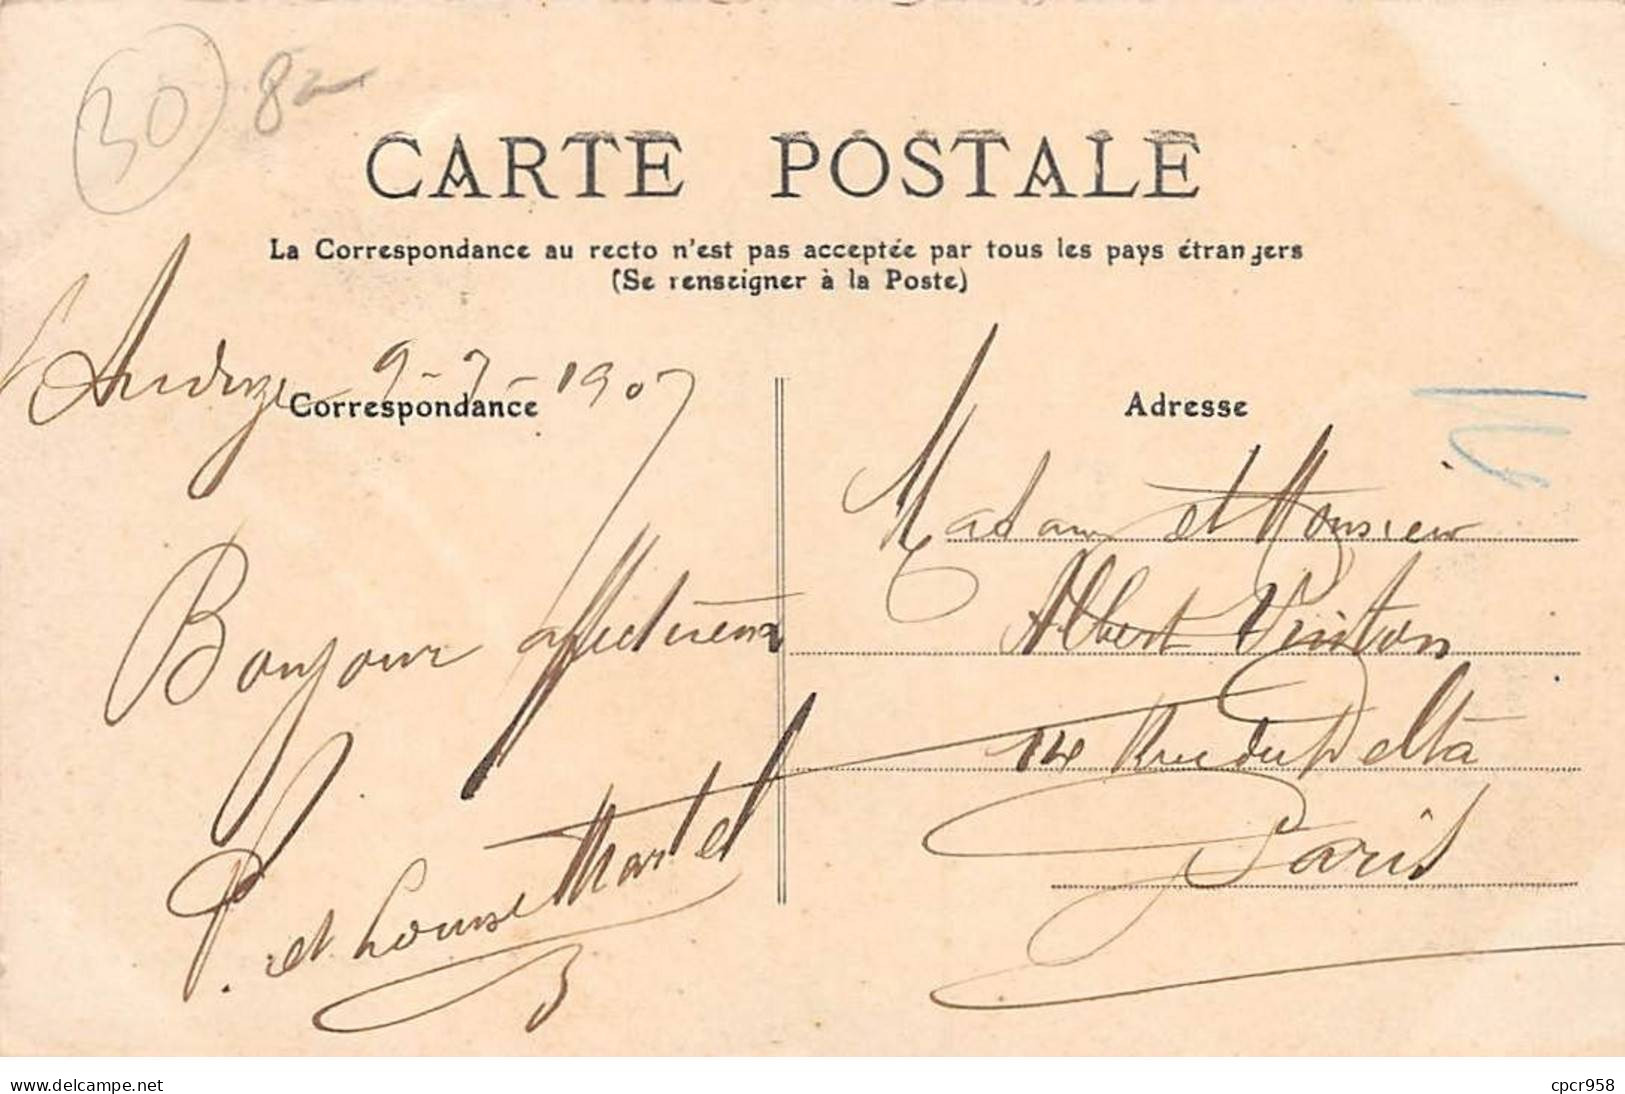 30 8
CARTE POSTALE
La Correspondance au recto n'est pas acceptée par tous les pays étrangers
(Se renseigner à la Poste)
Anduze 9-7-1907
Correspondance
Bonjour affectueux
P. et Louise Martel
Adresse
Madame et Monsieur
Albert Vinton
14 Rue du Delta
Paris
www.delcampe.net
cpcr958